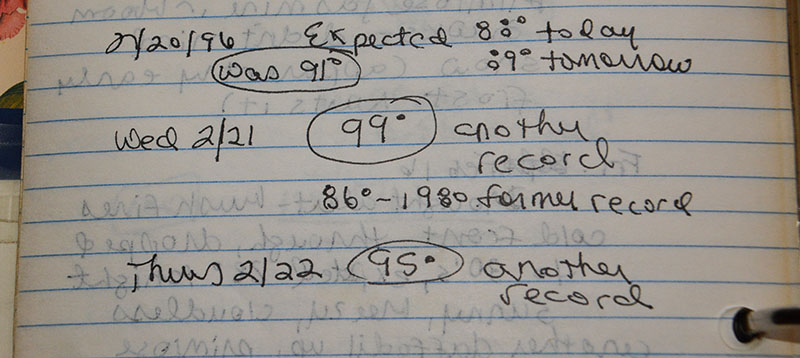 2/20/96 Expected 88° today
was 91° 89° tomorrow
Wed 2/21 99° another
record
86° - 1980 former record
Thurs 2/22 95° another
record